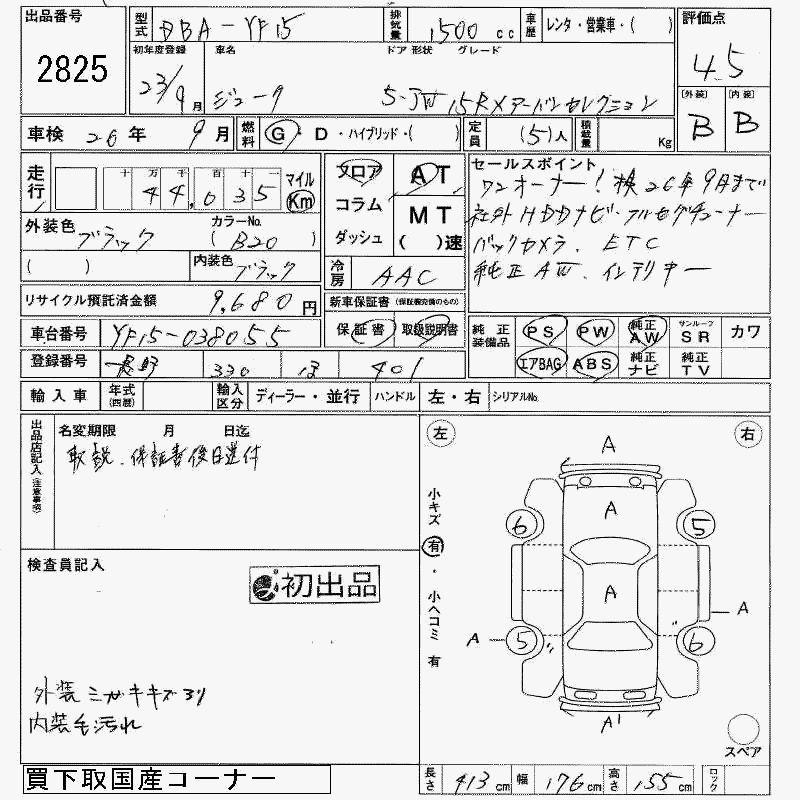 出品番号 2825
型式 DBA-YF15
排気量 1500 cc
車歴 レンタ・営業車・( )
評価点 4.5
初年度登録 23/9月
車名 ジューク
ドア 形状 グレード
5-JW 15RXアーバンセレクション
[外装] B [内装] B
車検 26年 9月
燃料 G・D・ハイブリッド・( )
定員 (5)人
積載量 Kg
走行 十 万 千 百 十 一
44,035 マイル Km
フロア コラム ダッシュ
AT
MT
( )速
セールスポイント
ワンオーナー!検26年9月まで
社外HDDナビ・フルセグチューナー
バックカメラ、ETC
純正AW、インテリキー
外装色 ブラック
カラーNo. (B20)
( )
内装色 ブラック
冷房 AAC
リサイクル預託済金額 9,680円
新車保証書 (保証継続完備のもの)
保証書 取扱説明書
車台番号 YF15-038055
純正装備品 PS PW 純正AW サンルーフSR カワ
エアBAG ABS 純正ナビ 純正TV
登録番号 長野 330 401
輸入車 年式(西暦) 輸入区分 ディーラー・並行 ハンドル 左・右 シリアルNo.
出品店記入(注意事項)
名変期限 月 日迄
取説、保証書後日送付
検査員記入
初出品
外装 ミガキキズ有り
内装 汚れ
買下取国産コーナー
左 右
小キズ 有・小ヘコミ 有
A
A
6 5
A
A
A 5 6
A'
スペア
長さ 413cm 幅 176cm 高さ 155cm ロック